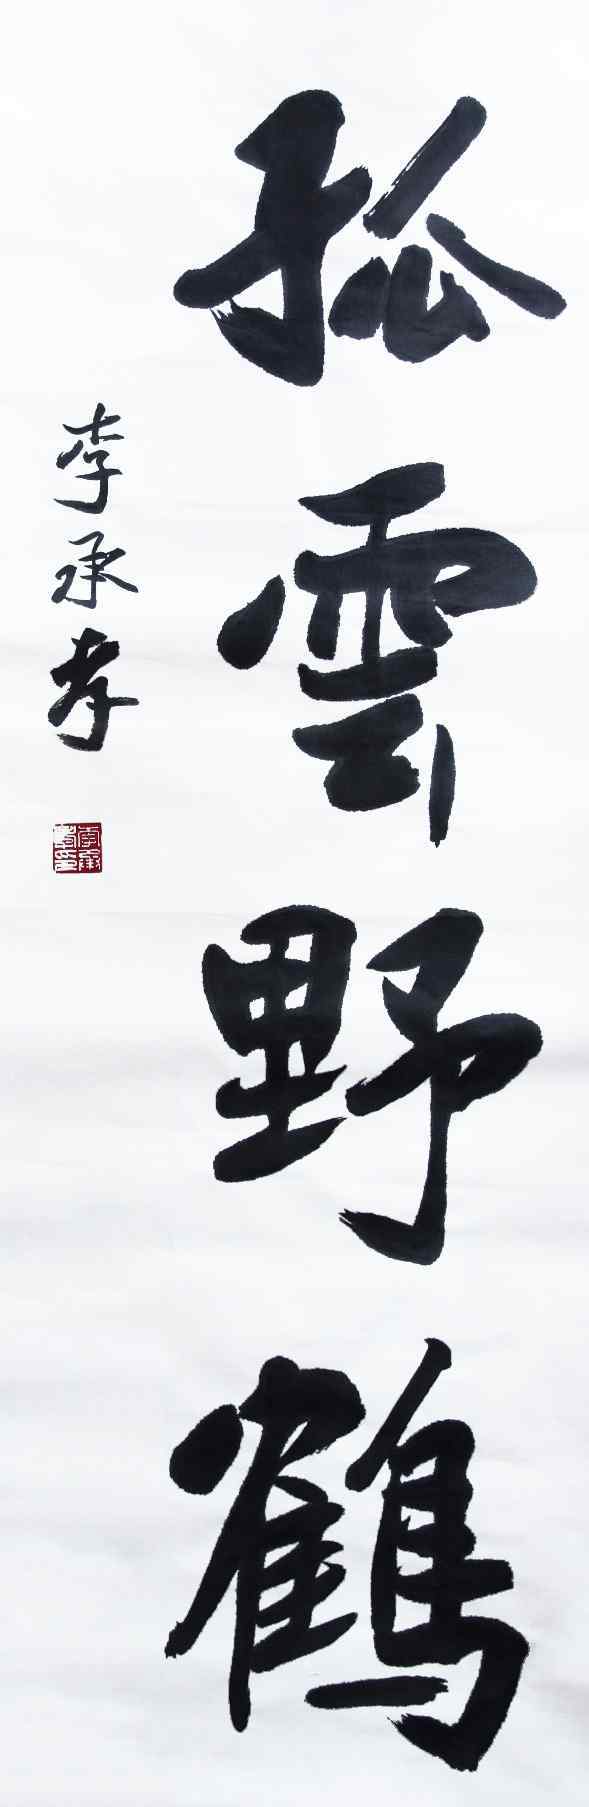 孤雲野鶴
李承孝